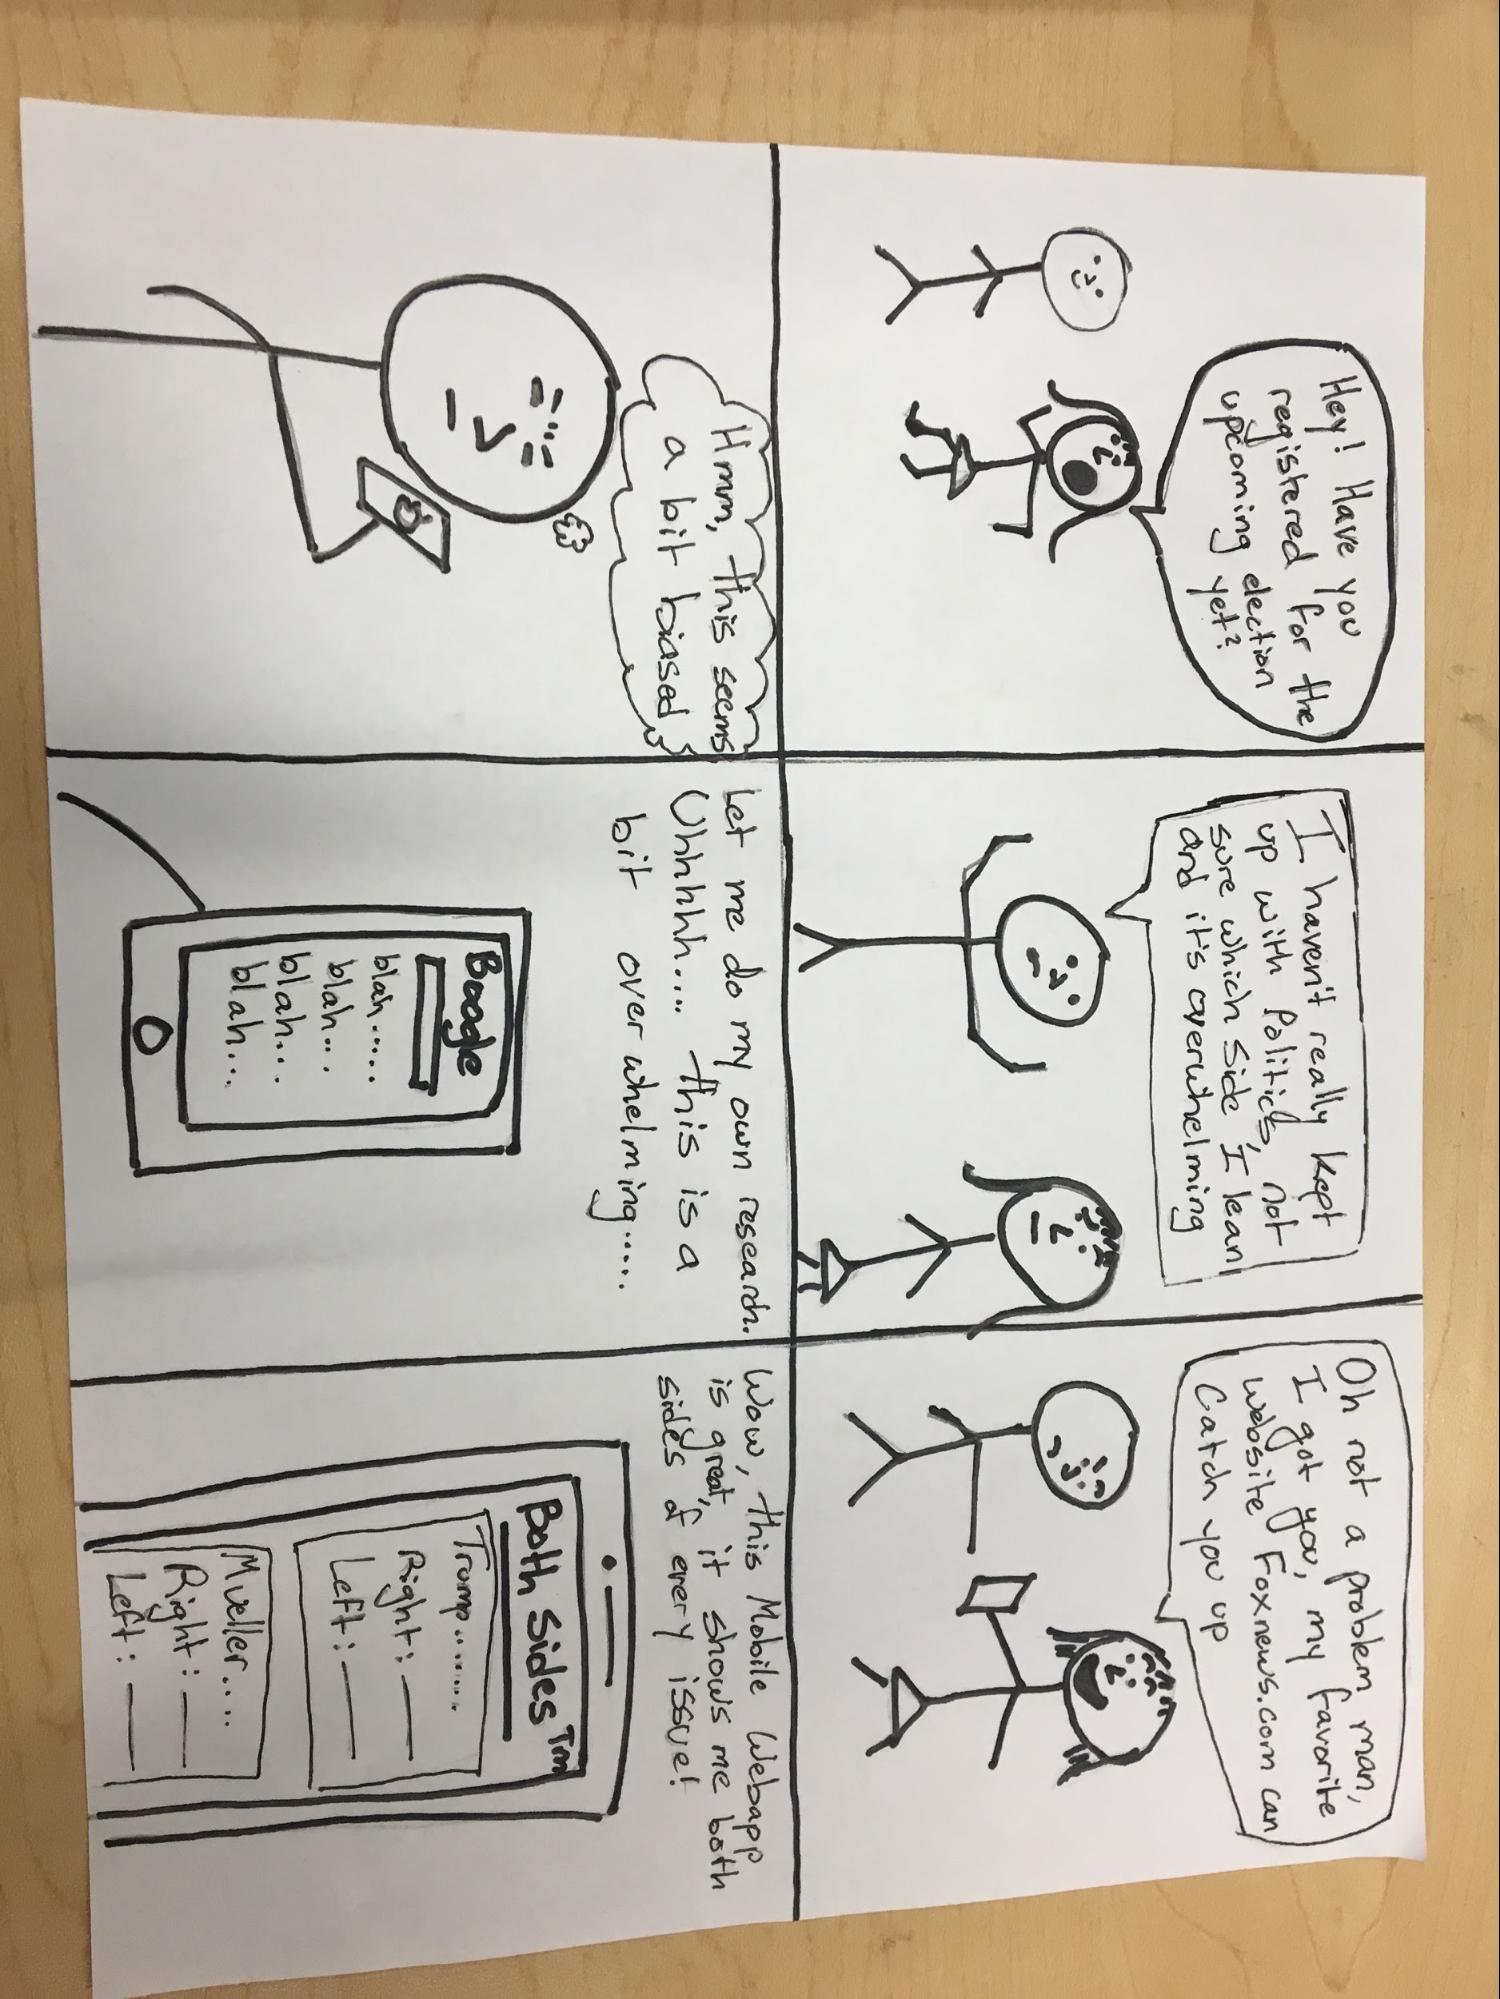 Hey! Have you
registered for the
upcoming election
yet?
I haven't really kept
up with Politics, not
sure which side I lean,
and it's overwhelming
Oh not a problem, man,
I got you, my favorite
website Foxnews.com can
Catch you up
Hmm, this seems
a bit biased
Let me do my own research.
Uhhhhh.... this is a
bit overwhelming.....
Boogle
blah.....
blah...
blah...
blah...
Wow, this Mobile Webapp
is great, it shows me both
sides of every issue!
Both Sides Tm
Trump.......
Right: ___
Left: ___
Mueller....
Right: ___
Left: ___